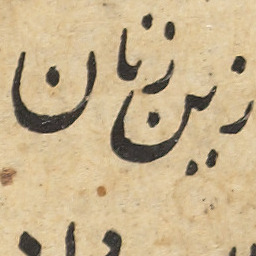 زین زنان